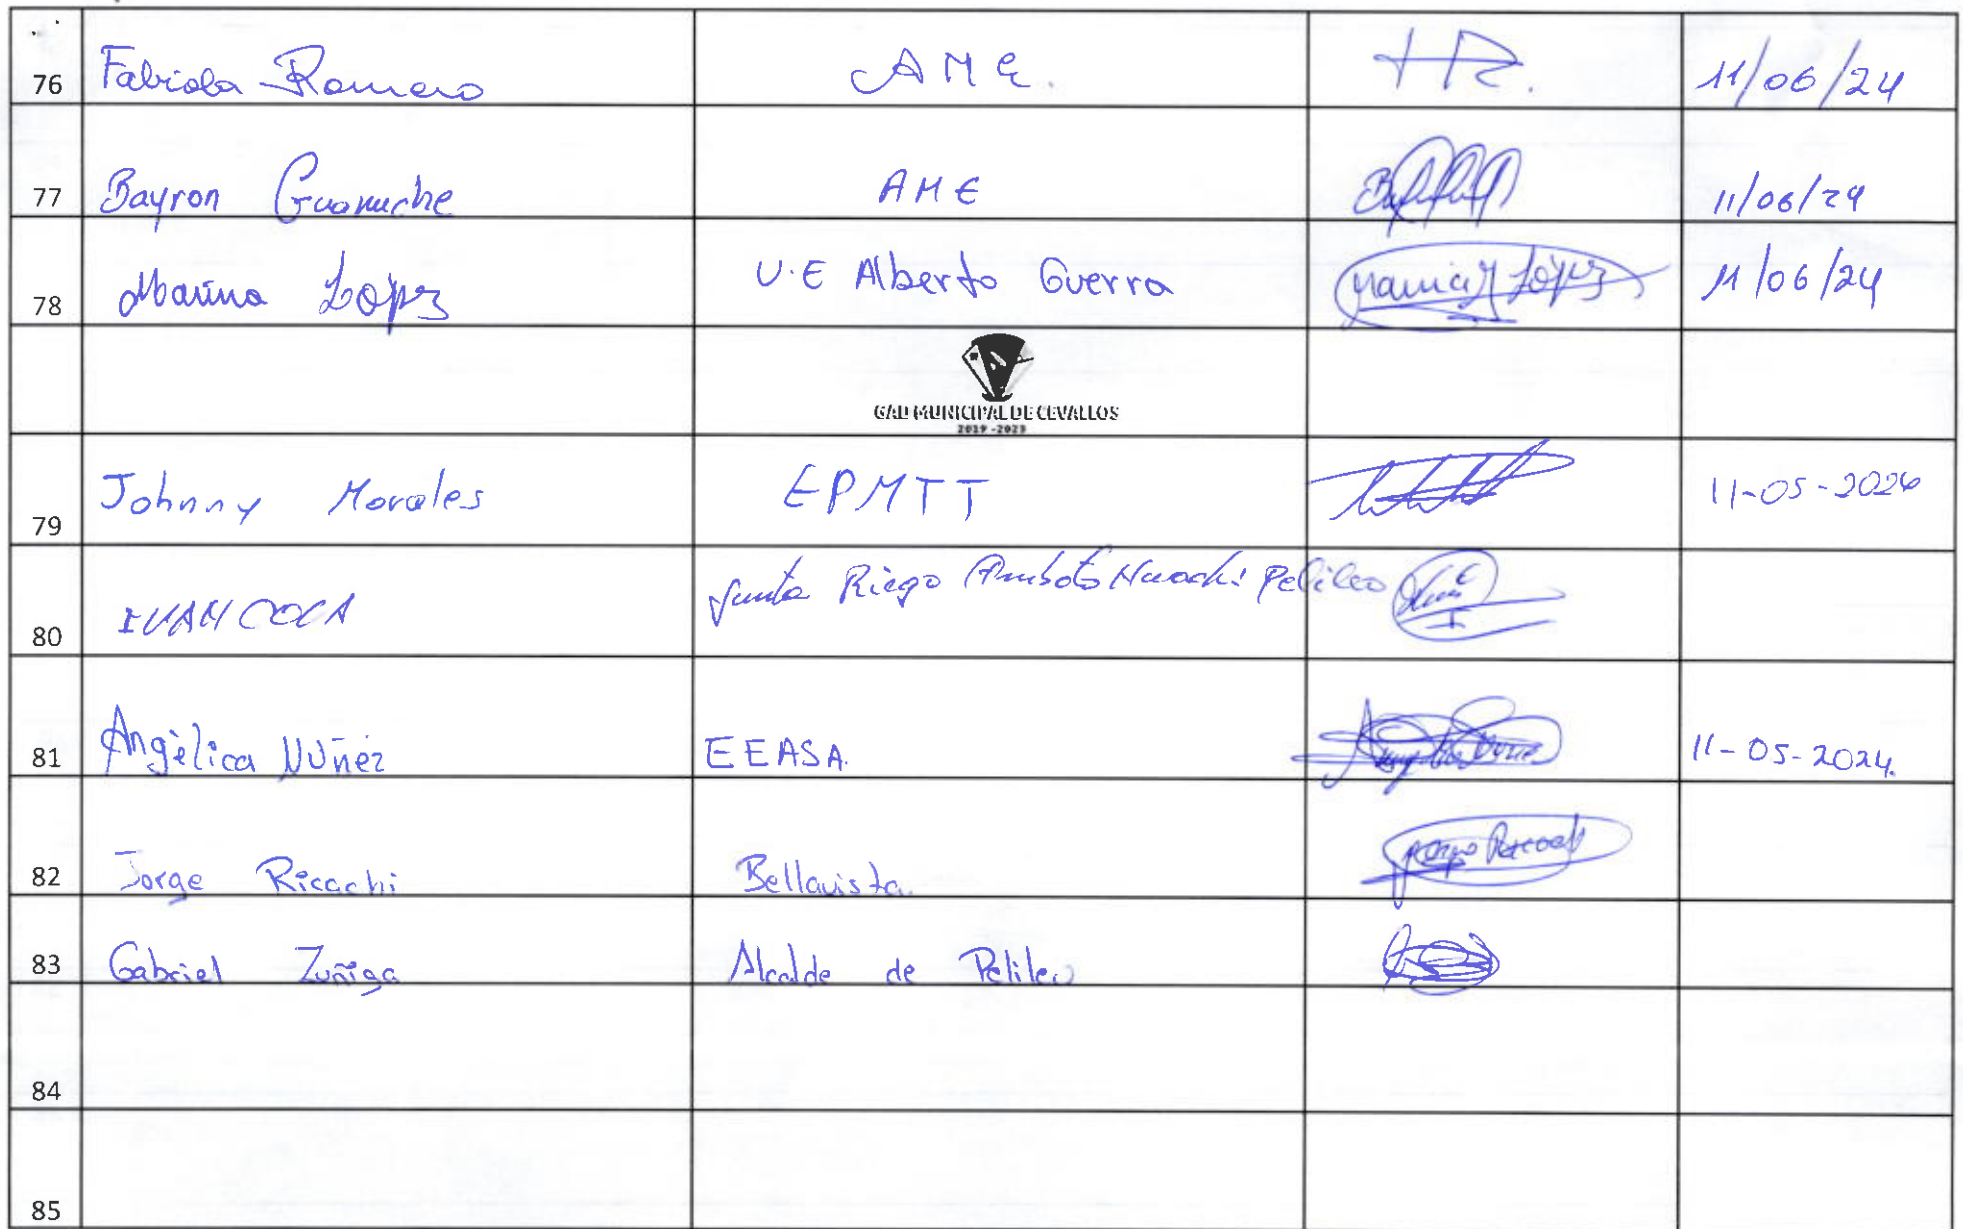 76 Fabiola Romero AME. 11/06/24
77 Bayron Guamuche AME 11/06/24
78 Marina López U.E Alberto Guerra 11/06/24
GAD MUNICIPAL DE CEVALLOS
2019 - 2023
79 Johnny Morales EPMTT 11-05-2024
80 IVAN COCA Junta Riego Ambato Huachi Pelileo
81 Angèlica Núñez EEASA. 11-05-2024.
82 Jorge Ricachi Bellavista.
83 Gabriel Zuñiga Alcalde de Pelileo
84
85